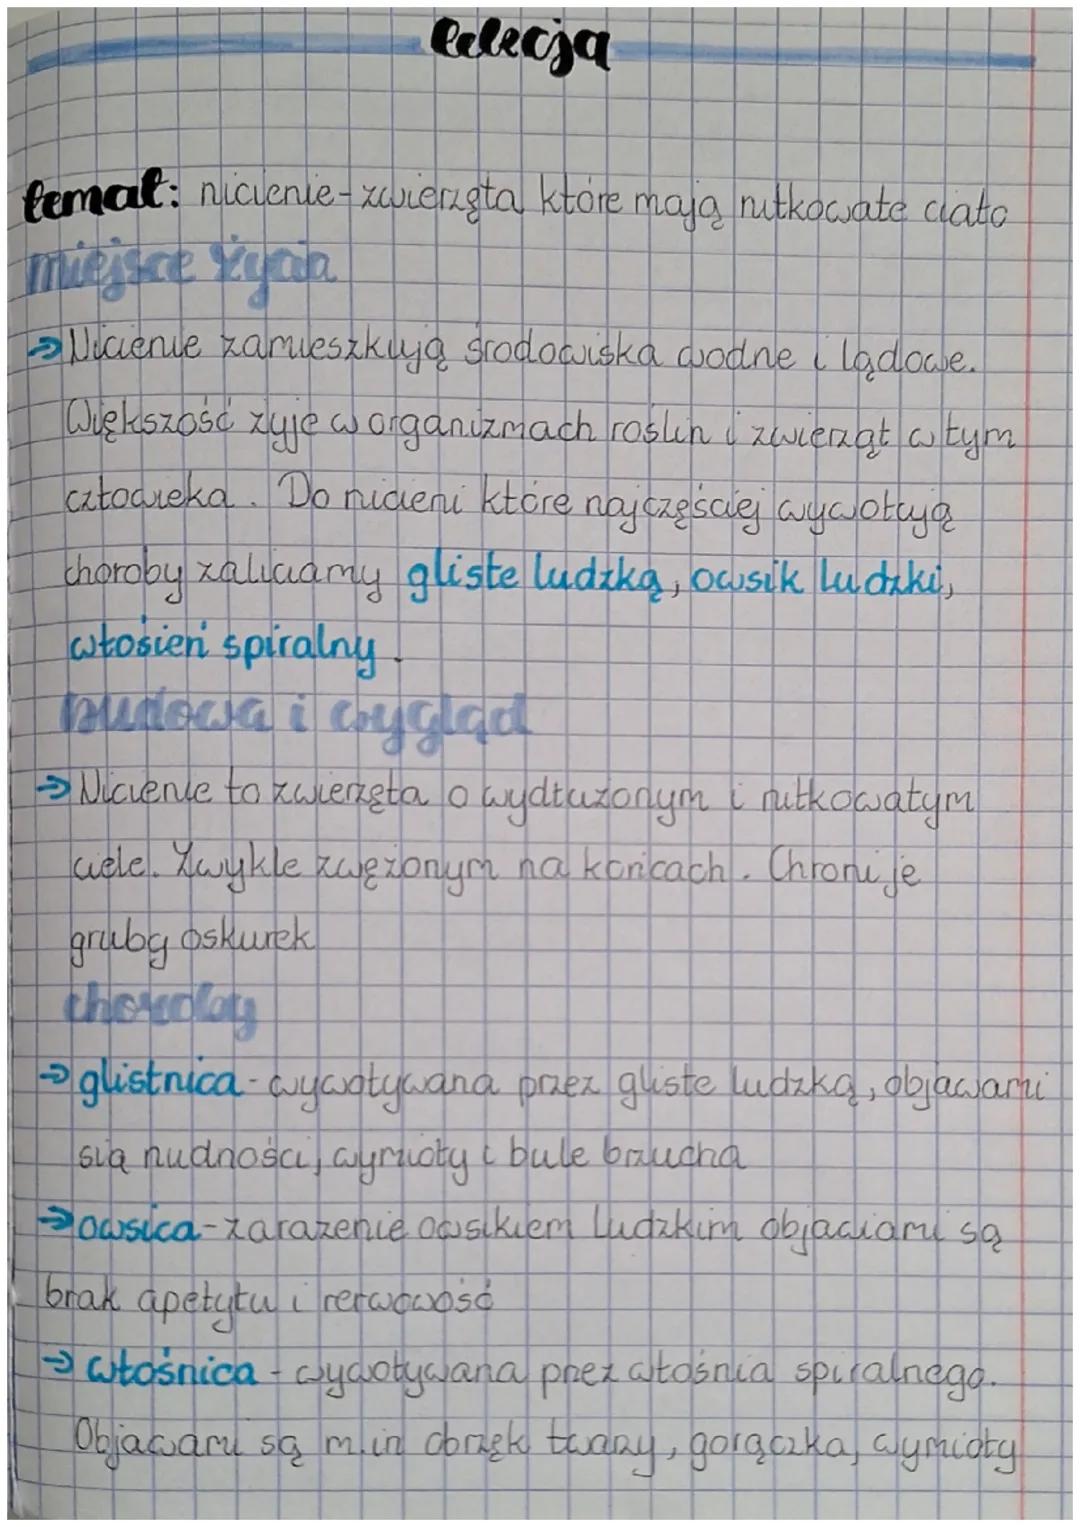 Lelecja
temat: nicienie-zwierzęta które mają nitkowate ciało
miejsce życia
→Nicienie zamieszkują środowiska wodne i lądowe.
Większość żyje w organizmach roślin i zwierząt w tym
człowieka. Do nicieni które najczęściej wywołują
choroby zaliczamy gliste ludzką, owsik ludzki,
włosień spiralny.
budowa i wygląd
→Nicienie to zwierzęta o wydłużonym i nitkowatym
ciele. Zwykle zwężonym na końcach. Chroni je
gruby oskurek
choroby
→glistnica-wywoływana przez gliste ludzką, objawami
są nudności, wymioty i bule brzucha
→owsica-zarażenie owsikiem ludzkim objawami są
brak apetytu i nerwowość
→włośnica-wywoływana przez włośnia spiralnego.
Objawami są m.in obrzęk twarzy, gorączka, wymioty